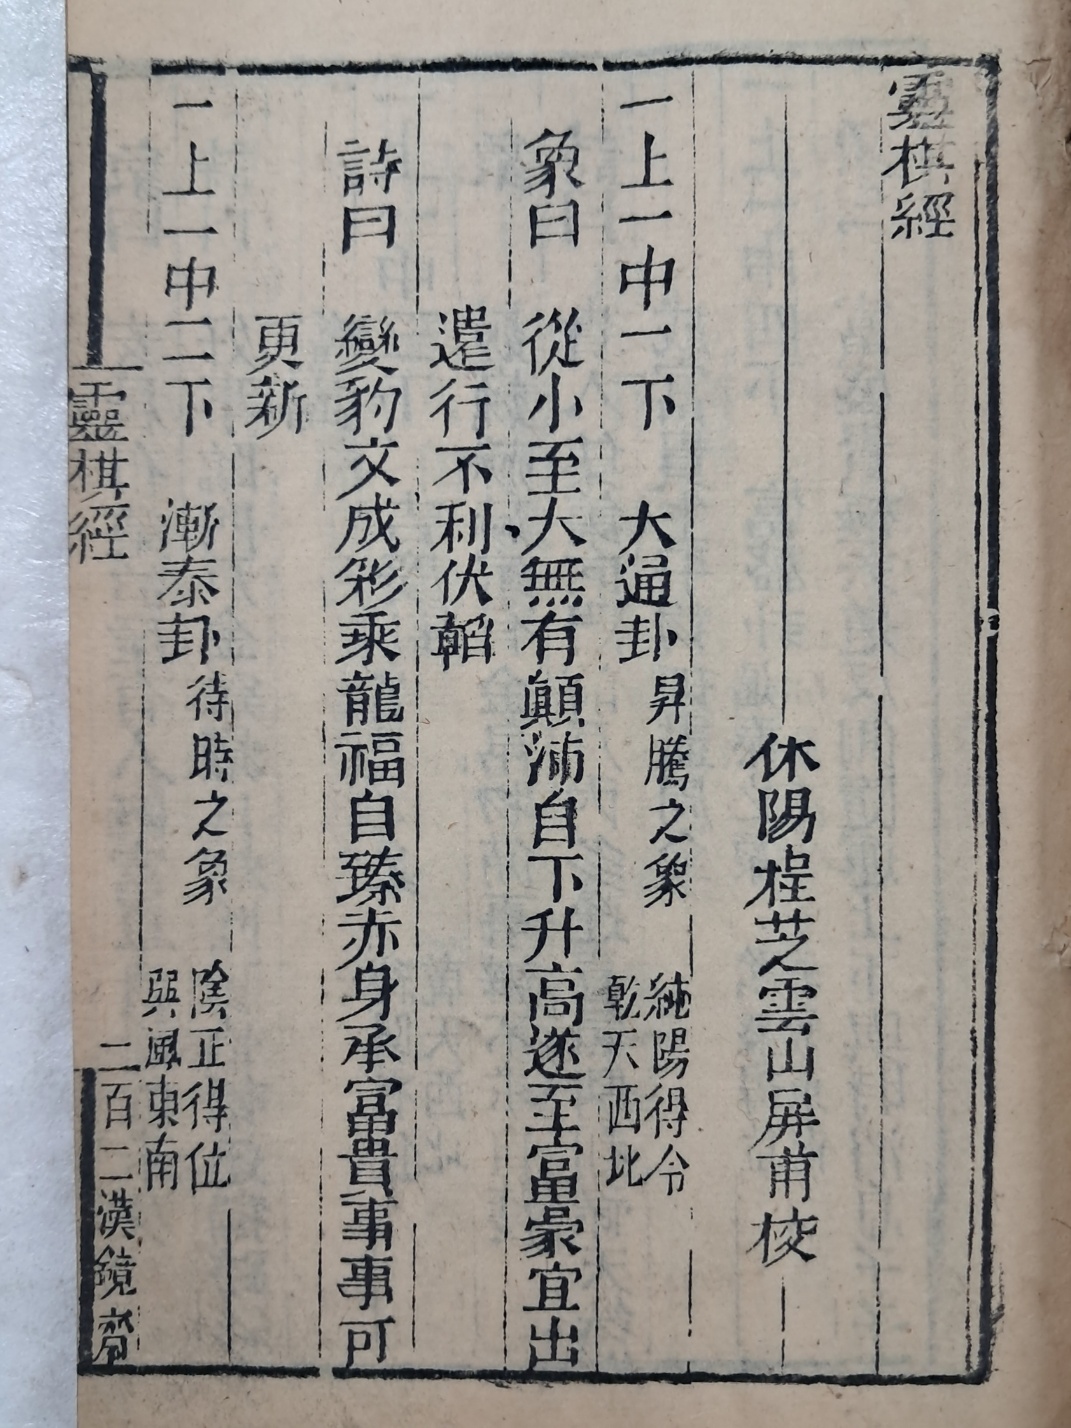 靈棋經
休陽程芝雲山屏甫校
一上一中一下　大通卦　昇騰之象　純陽得令　乾天西北
象曰　從小至大無有顛沛自下升高遂至富豪宜出
遣行不利伏韜
詩曰　變豹文成彩乘龍福自臻赤身承富貴事事可
更新
一上一中二下　漸泰卦　待時之象　陰正得位　巽風東南
靈棋經　二百二漢鏡齋